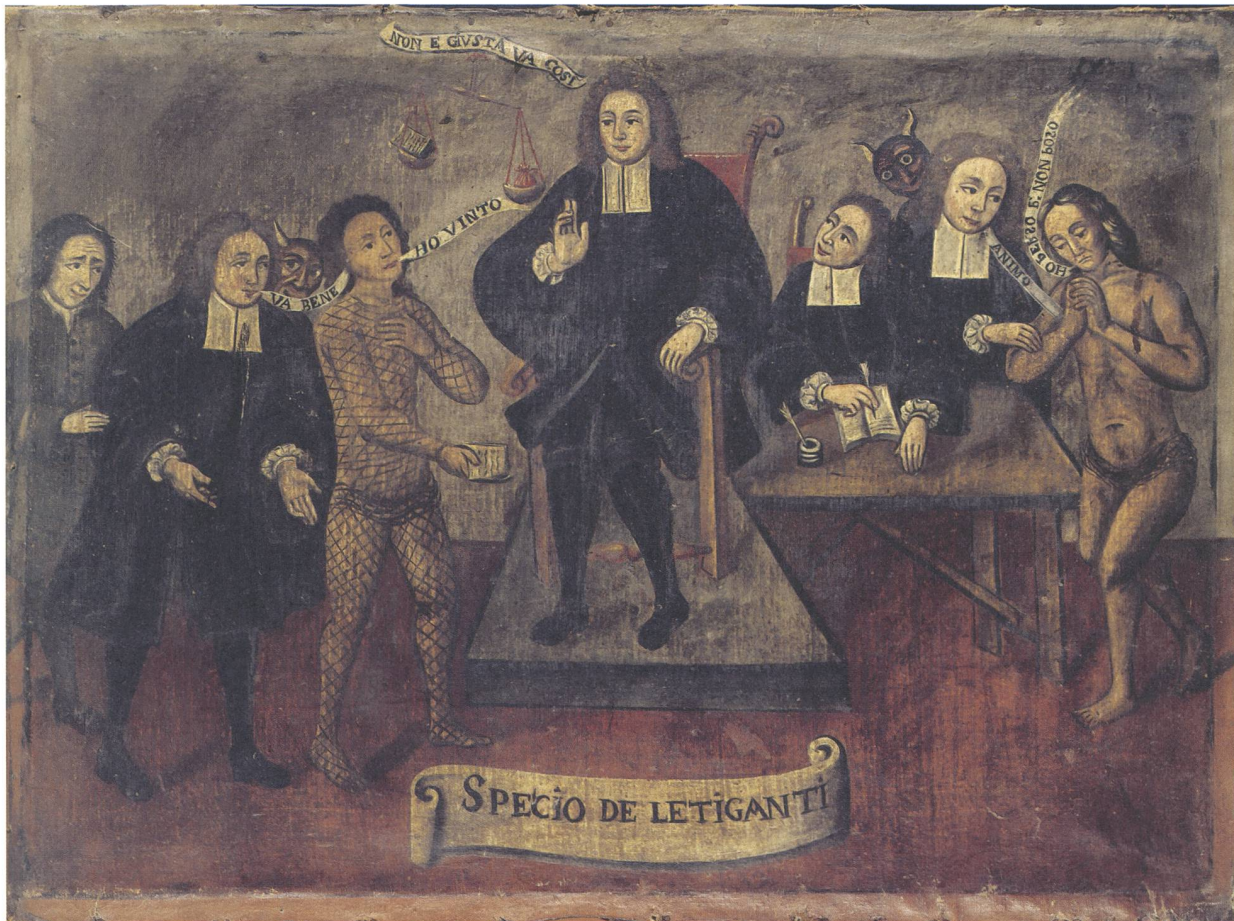 NON E GIVSTA VA COSI
HO VINTO
VA BENE
ANIMO
HO PERSO E. NON POSO
SPECIO DE LETIGANTI